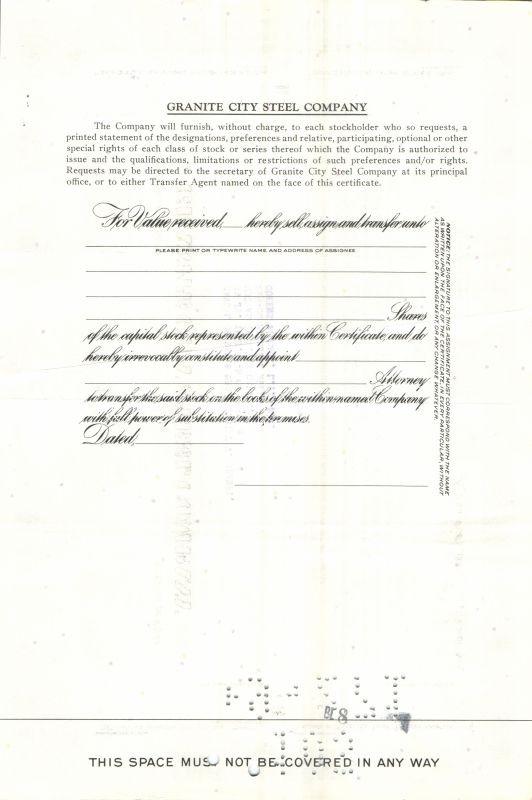 GRANITE CITY STEEL COMPANY
The Company will furnish, without charge, to each stockholder who so requests, a
printed statement of the designations, preferences and relative, participating, optional or other
special rights of each class of stock or series thereof which the Company is authorized to
issue and the qualifications, limitations or restrictions of such preferences and/or rights.
Requests may be directed to the secretary of Granite City Steel Company at its principal
office, or to either Transfer Agent named on the face of this certificate.
For Value received, hereby sell, assign and transfer unto
PLEASE PRINT OR TYPEWRITE NAME AND ADDRESS OF ASSIGNEE
Shares
of the capital stock represented by the within Certificate, and do
hereby irrevocably constitute and appoint
Attorney
to transfer the said stock on the books of the within named Company
with full power of substitution in the premises.
Dated
NOTICE: THE SIGNATURE TO THIS ASSIGNMENT MUST CORRESPOND WITH THE NAME
AS WRITTEN UPON THE FACE OF THE CERTIFICATE, IN EVERY PARTICULAR, WITHOUT
ALTERATION OR ENLARGEMENT, OR ANY CHANGE WHATEVER.
THIS SPACE MUST NOT BE COVERED IN ANY WAY